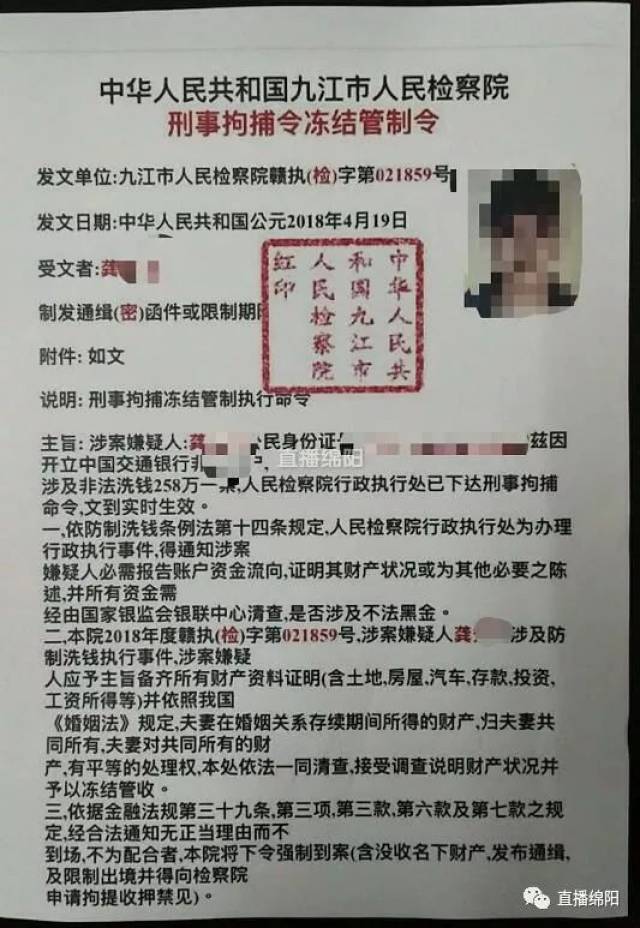 中华人民共和国九江市人民检察院
刑事拘捕令冻结管制令
发文单位:九江市人民检察院赣执(检)字第021859号
发文日期:中华人民共和国公元2018年4月19日
受文者:龚
中华人民共
和国九江市
人民检察院
红印
制发通缉(密)函件或限制期
附件: 如文
说明: 刑事拘捕冻结管制执行命令
主旨: 涉案嫌疑人:龚 公民身份证 兹因
开立中国交通银行非 户,
直播绵阳
涉及非法洗钱258万一案,人民检察院行政执行处已下达刑事拘捕
命令,文到实时生效。
一,依防制洗钱条例法第十四条规定,人民检察院行政执行处为办理
行政执行事件,得通知涉案
嫌疑人必需报告账户资金流向,证明其财产状况或为其他必要之陈
述,并所有资金需
经由国家银监会银联中心清查,是否涉及不法黑金。
二,本院2018年度赣执(检)字第021859号,涉案嫌疑人龚 涉及防
制洗钱执行事件,涉案嫌疑
人应予主旨备齐所有财产资料证明(含土地,房屋,汽车,存款,投资,
工资所得等)并依照我国
《婚姻法》规定,夫妻在婚姻关系存续期间所得的财产,归夫妻共
同所有,夫妻对共同所有的财
产,有平等的处理权,本处依法一同清查,接受调查说明财产状况并
予以冻结管收。
三,依据金融法规第三十九条,第三项,第三款,第六款及第七款之规
定,经合法通知无正当理由而不
到场,不为配合者,本院将下令强制到案(含没收名下财产,发布通缉,
及限制出境并得向检察院
申请拘提收押禁见)。
直播绵阳